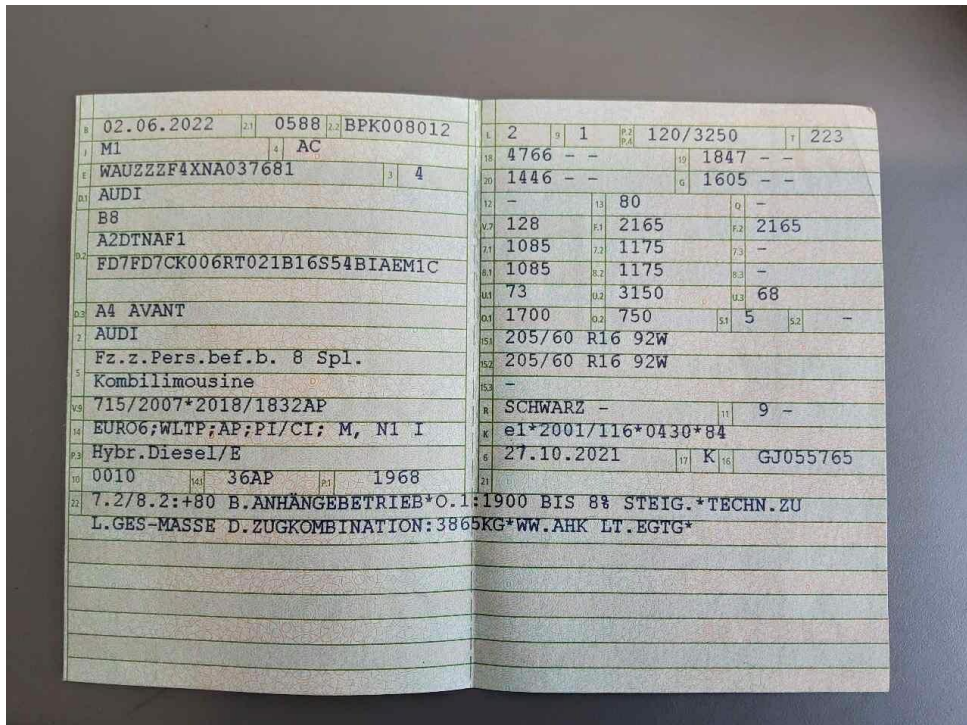 B 02.06.2022 2.1 0588 2.2 BPK008012
J M1 4 AC
E WAUZZZF4XNA037681 3 4
D.1 AUDI
B8
D.2 A2DTNAF1
FD7FD7CK006RT021B16S54BIAEM1C
D.3 A4 AVANT
2 AUDI
5 Fz.z.Pers.bef.b. 8 Spl.
Kombilimousine
V.9 715/2007*2018/1832AP
14 EURO6;WLTP;AP;PI/CI; M, N1 I
P.3 Hybr.Diesel/E
10 0010 14.1 36AP P.1 1968
L 2 9 1 P.2 P.4 120/3250 T 223
18 4766 - - 19 1847 - -
20 1446 - - G 1605 - -
12 - 13 80 Q -
V.7 128 F.1 2165 F.2 2165
7.1 1085 7.2 1175 7.3 -
8.1 1085 8.2 1175 8.3 -
U.1 73 U.2 3150 U.3 68
O.1 1700 O.2 750 S.1 5 S.2 -
15.1 205/60 R16 92W
15.2 205/60 R16 92W
15.3 -
R SCHWARZ - 11 9 -
K e1*2001/116*0430*84
6 27.10.2021 17 K 16 GJ055765
21
22 7.2/8.2:+80 B.ANHÄNGEBETRIEB*O.1:1900 BIS 8% STEIG.*TECHN.ZU
L.GES-MASSE D.ZUGKOMBINATION:3865KG*WW.AHK LT.EGTG*